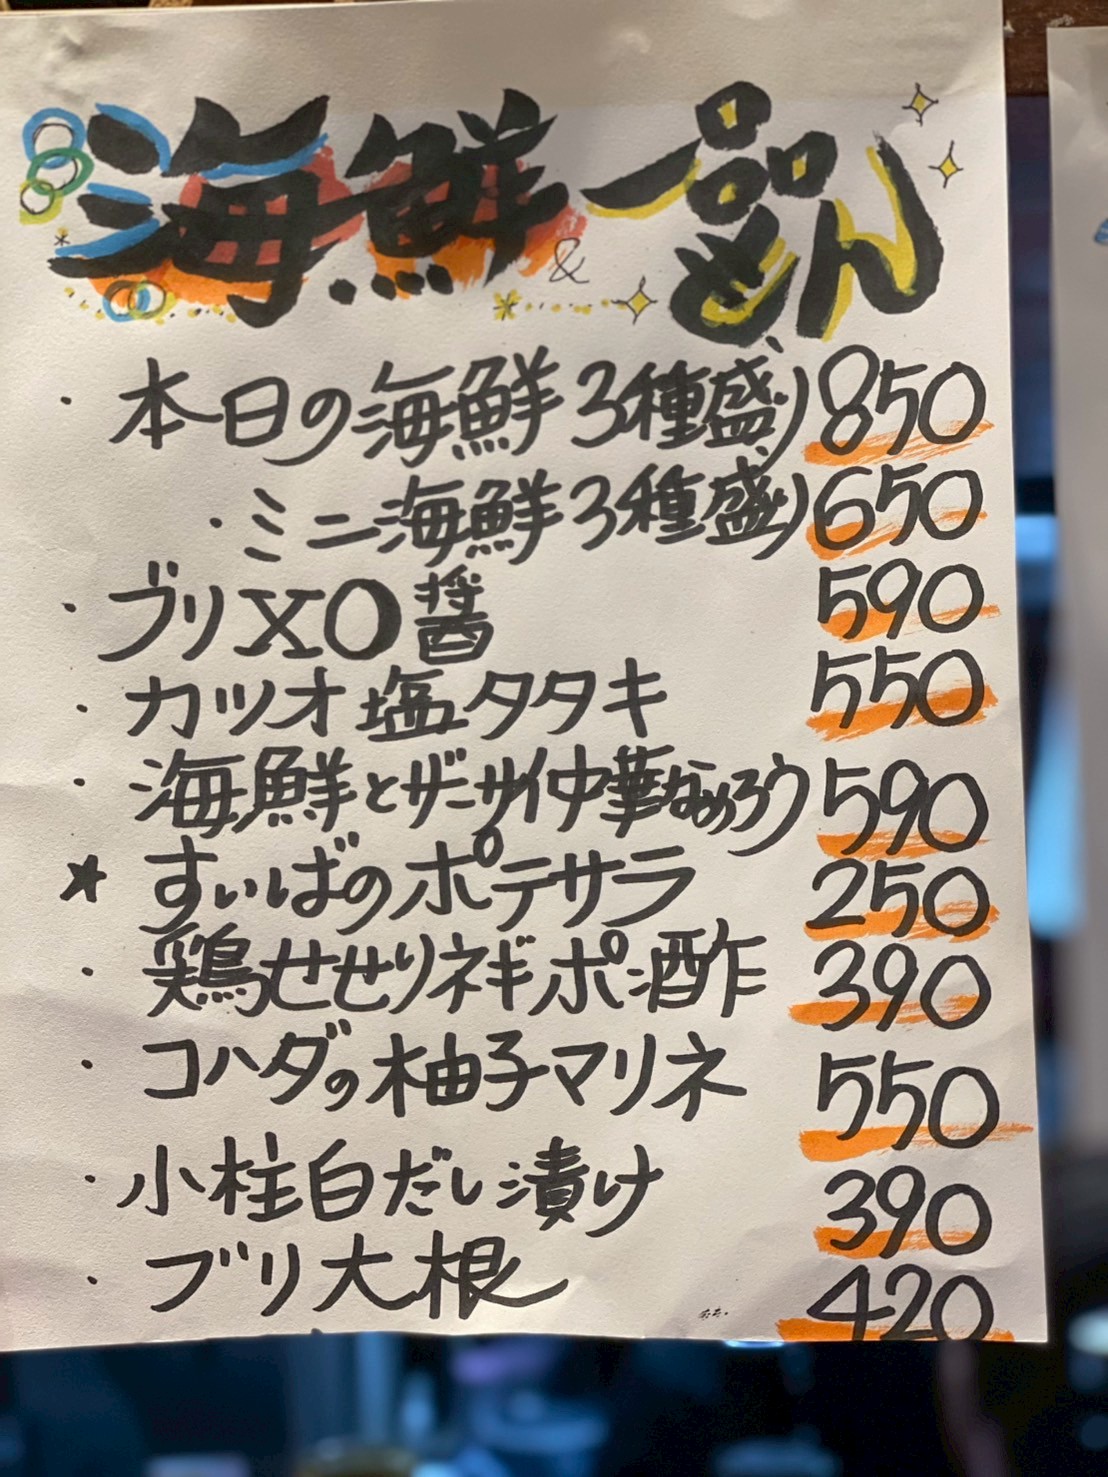 海鮮 & 一品もん
・本日の海鮮3種盛り 850
・ミニ海鮮3種盛り 650
・ブリXO醤 590
・カツオ塩タタキ 550
・海鮮とザーサイ中華なめろう 590
★すいばのポテサラ 250
・鶏せせりネギポン酢 390
・コハダの柚子マリネ 550
・小柱白だし漬け 390
・ブリ大根 420